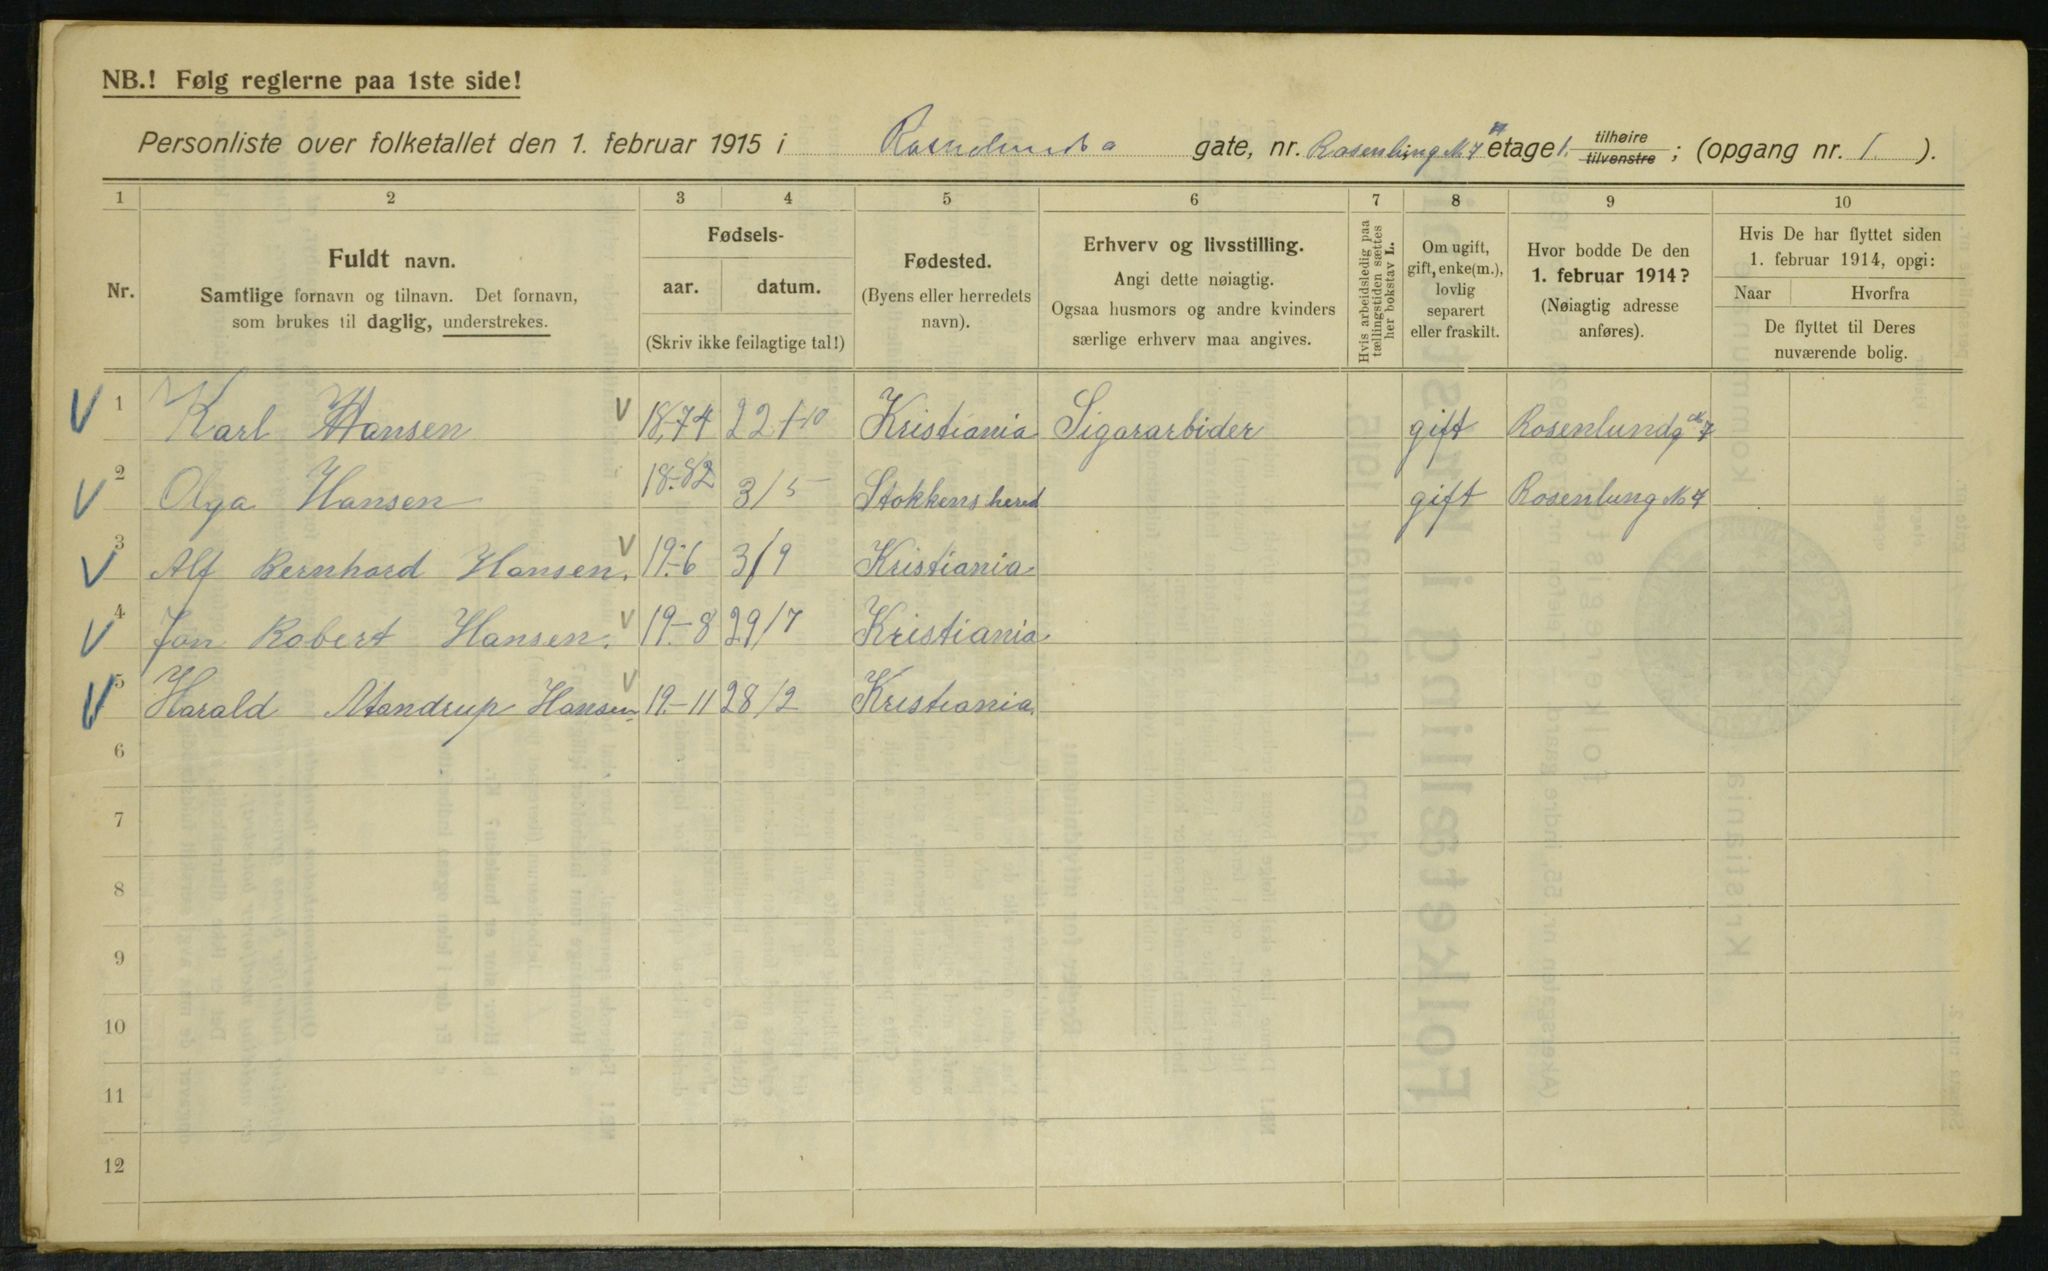 NB.! Følg reglerne paa 1ste side!
Personliste over folketallet den 1. februar 1915 i gate, nr. Rosenlung No 7 etage 1. tilhøire tilvenstre ; (opgang nr. 1. ).
1 2 3 4 5 6 7 8 9 10
Nr.
Fuldt navn.
Samtlige fornavn og tilnavn. Det fornavn,
som brukes til daglig, understrekes.
Fødsels-
aar. datum.
(Skriv ikke feilagtige tal!)
Fødested.
(Byens eller herredets
navn).
Erhverv og livsstilling.
Angi dette nøiagtig.
Ogsaa husmors og andre kvinders
særlige erhverv maa angives.
Hvis arbeidsledig paa
tællingstiden sættes
her bokstav L.
Om ugift,
gift, enke(m.),
lovlig
separert
eller fraskilt.
Hvor bodde De den
1. februar 1914?
(Nøiagtig adresse
anføres).
Hvis De har flyttet siden
1. februar 1914, opgi:
Naar Hvorfra
De flyttet til Deres
nuværende bolig.
1 Karl Hansen 18-74 22/10 Kristiania Sigararbider gift Rosenlundg No 7
2 Olga Hansen 18-82 3/5 Stokkens hered gift Rosenlung No 7
3 Alf Bernhard Hansen. 19-6 3/9 Kristiania
4 Jon Robert Hansen. 19-8 29/7 Kristiania
5 Harald Hansen 19-11 28/2 Kristiania.
6
7
8
9
10
11
12